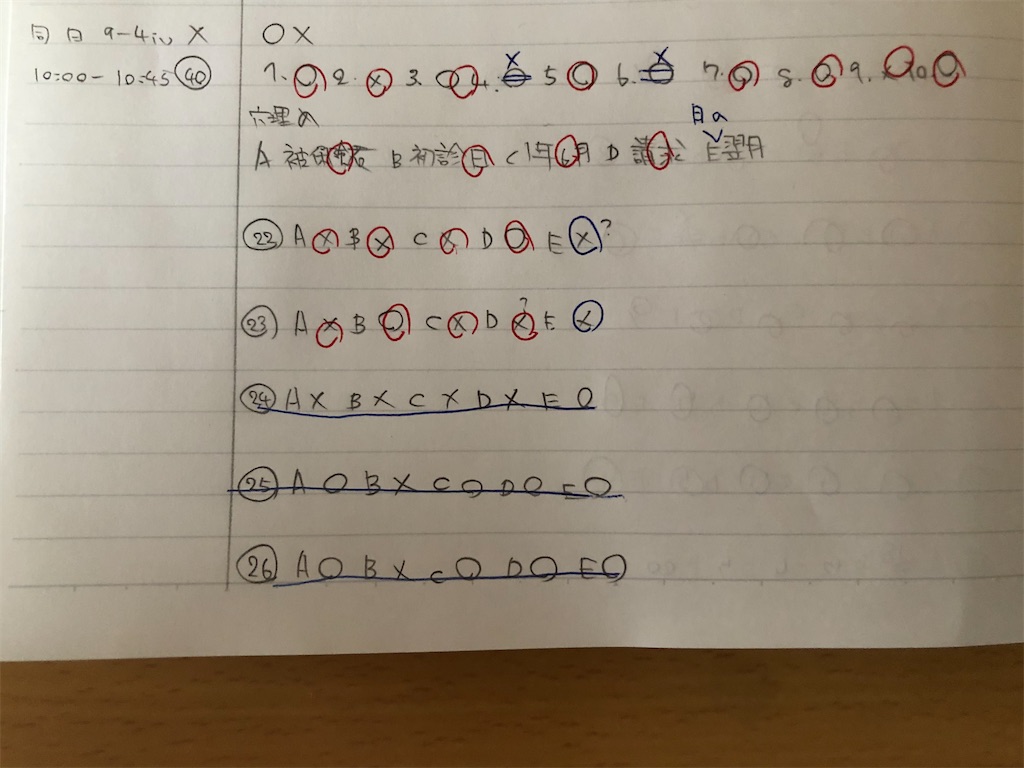 同日 9-4iv X OX
10:00-10:45 40 1. O 2. X 3. O 4. X 5 O 6. X 7. O 8. O 9. O 10 O
穴埋め 月の
A 被保険者 B 初診日 C 1年6月 D 請求 E翌月
22 A X B X C X D O E X?
23 A X B O C X D X? E X
24 A X B X C X D X E O
25 A O B X C O D O E O
26 A O B X C O D O E O